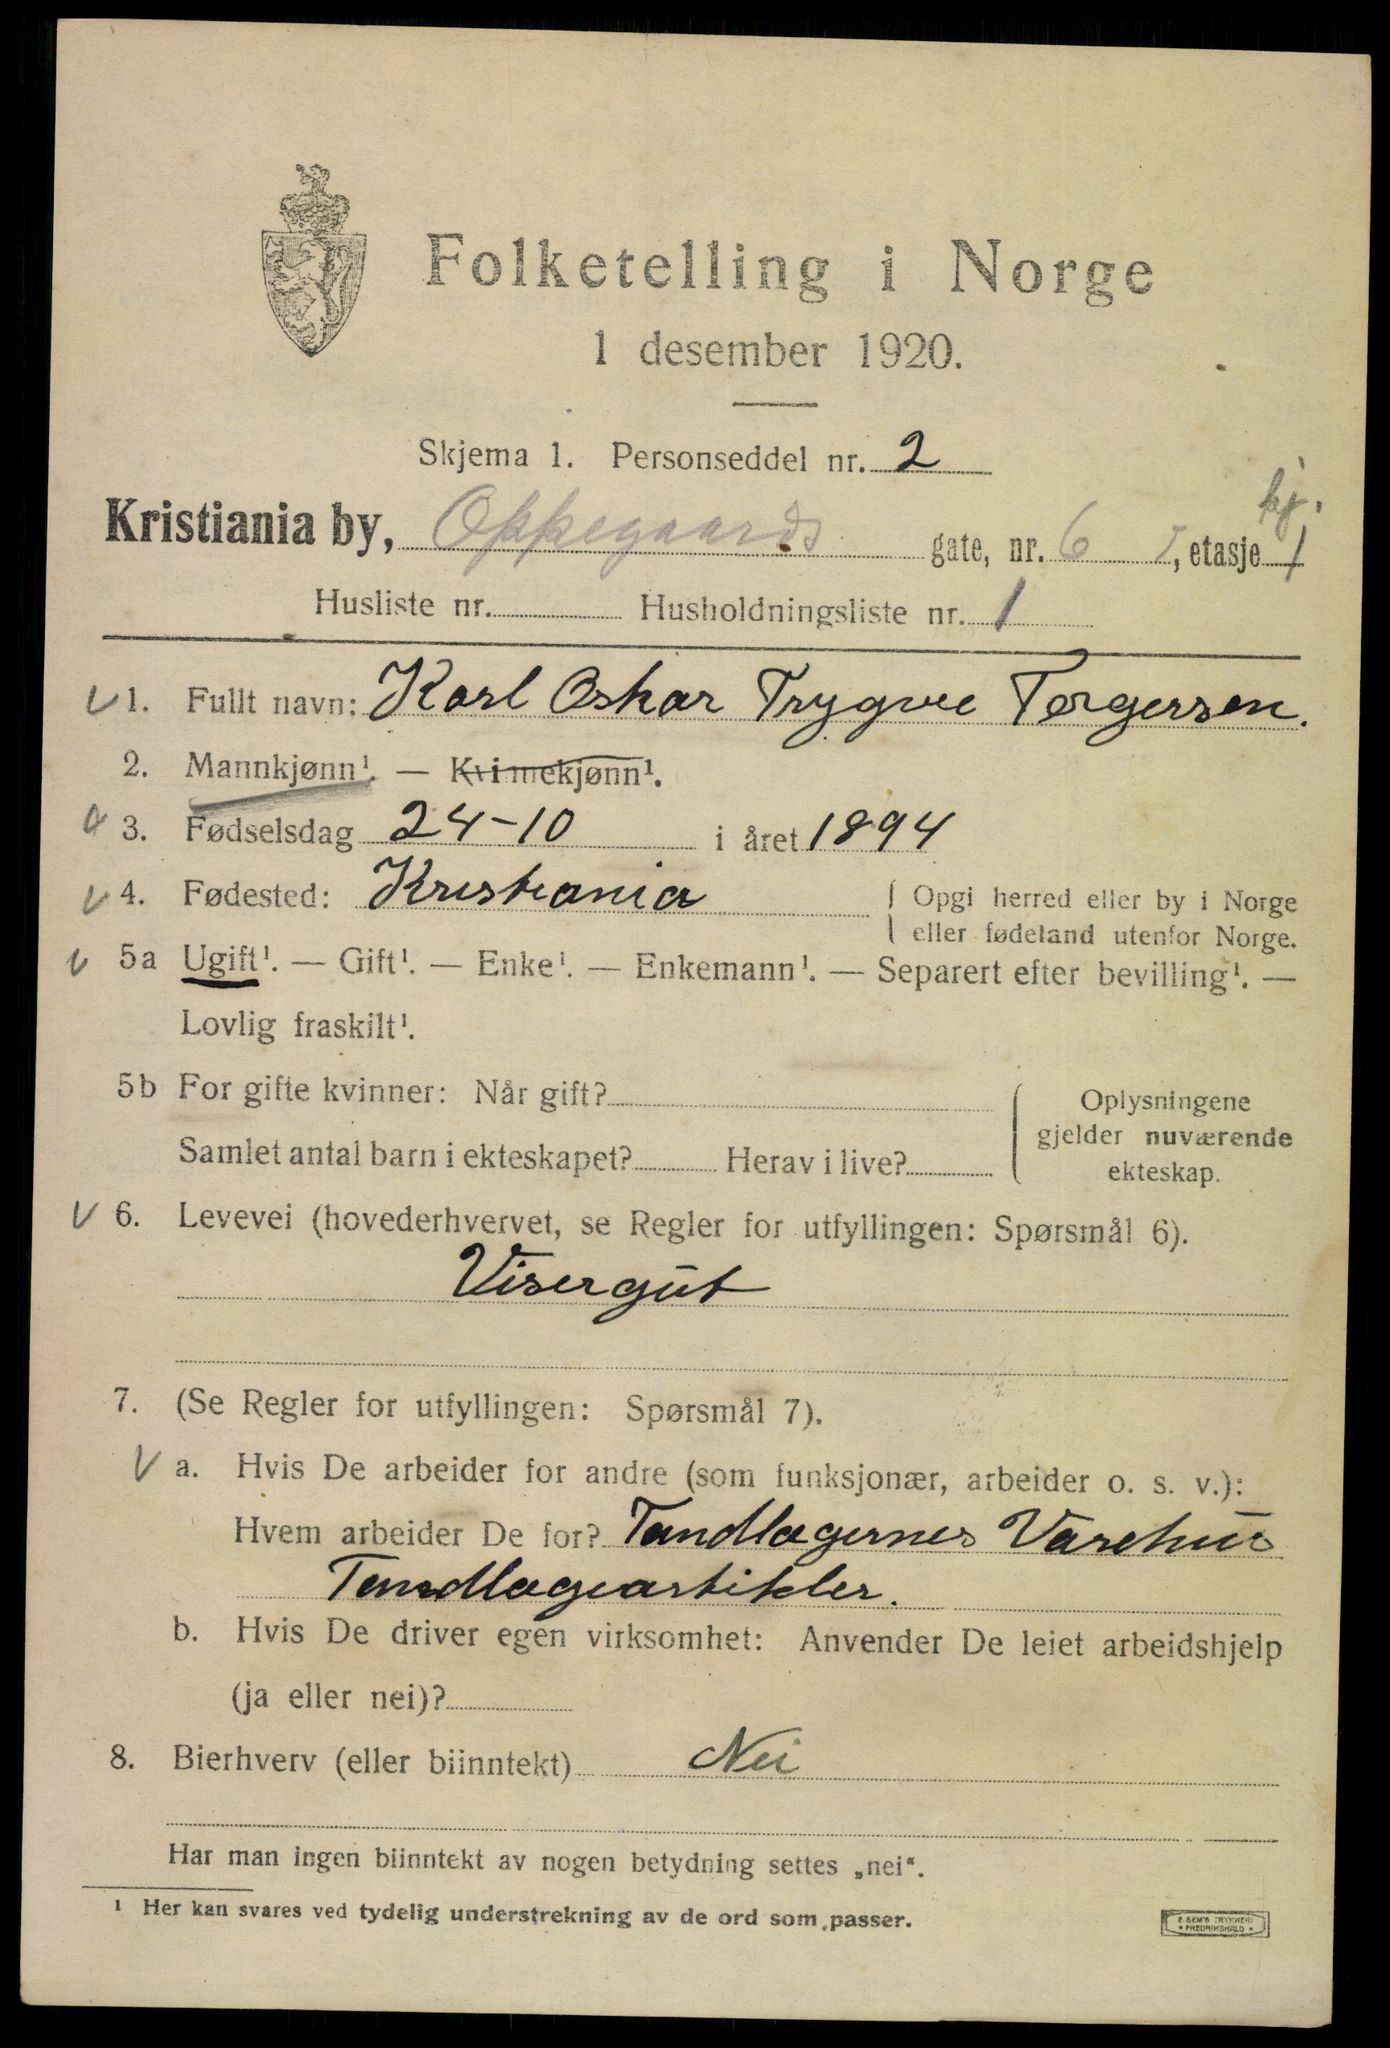 Folketelling i Norge
1 desember 1920.
Skjema 1. Personseddel nr. 2
Kristiania by, Oppegaards gate, nr. 6 I, etasje 1
Husliste nr. Husholdningsliste nr. 1
1. Fullt navn: Karl Oskar Trygve Torgersen.
2. Mannkjønn¹. — Kvinnekjønn¹.
3. Fødselsdag 24-10 i året 1894
4. Fødested: Kristiania
Opgi herred eller by i Norge
eller fødeland utenfor Norge.
5a Ugift¹. — Gift¹. — Enke¹. — Enkemann¹. — Separert efter bevilling¹. —
Lovlig fraskilt¹.
5b For gifte kvinner: Når gift?
Samlet antal barn i ekteskapet? Herav i live?
Oplysningene
gjelder nuværende
ekteskap.
6. Levevei (hovederhvervet, se Regler for utfyllingen: Spørsmål 6).
Visergut
7. (Se Regler for utfyllingen: Spørsmål 7).
a. Hvis De arbeider for andre (som funksjonær, arbeider o. s. v.):
Hvem arbeider De for? Tandlægernes Varehus
Tandlægeartikler.
b. Hvis De driver egen virksomhet: Anvender De leiet arbeidshjelp
(ja eller nei)?
8. Bierhverv (eller biinntekt) Nei
Har man ingen biinntekt av nogen betydning settes „nei“.
¹ Her kan svares ved tydelig understrekning av de ord som passer.
E SEM'S TRYKKERI
FREDRIKSHALD